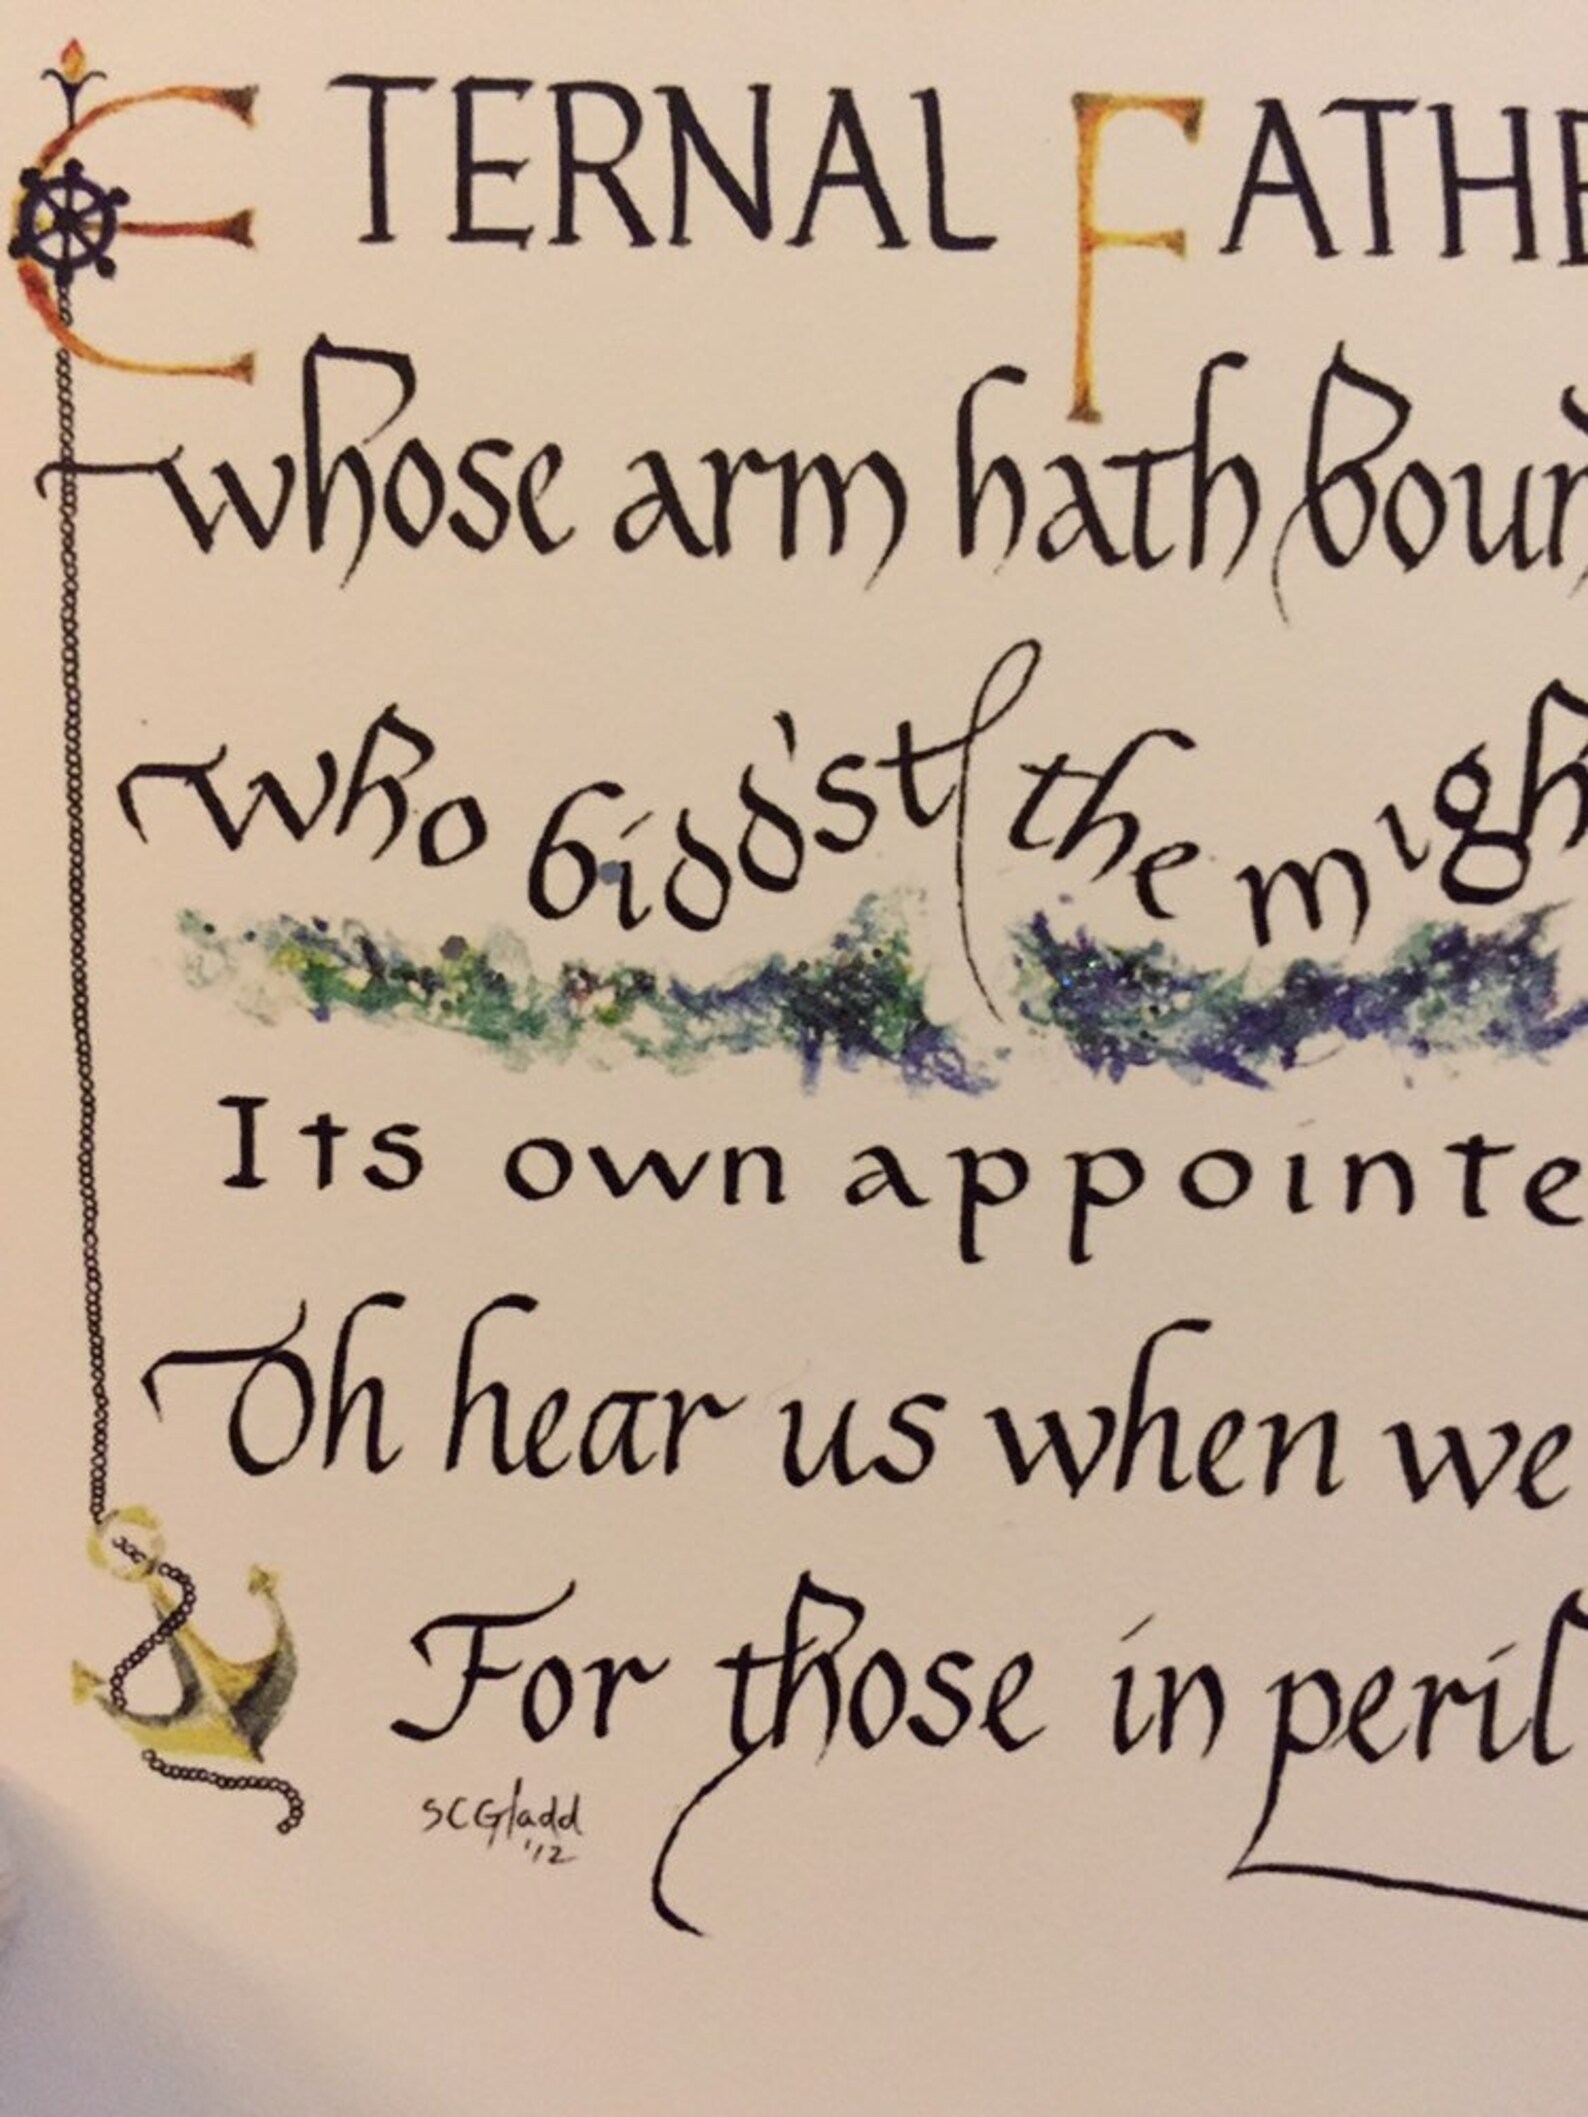 ETERNAL FATHE
whose arm hath boun
who bidd'st the migh
Its own appointe
Oh hear us when we
For those in peril
SCGladd
'12